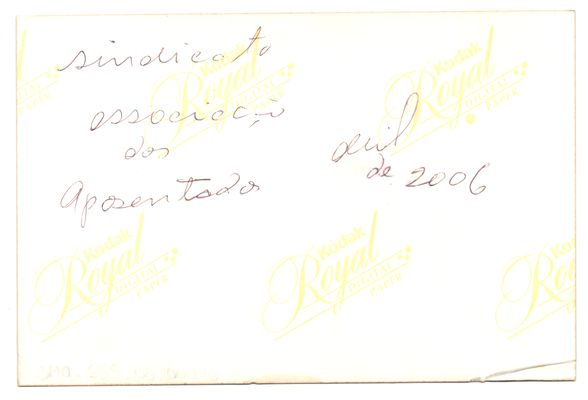 sindicato
associação
dos
Aposentados
abril
de 2006
Kodak
Royal
DIGITAL
PAPER
Kodak
Royal
DIGITAL
PAPER
Kodak
Royal
DIGITAL
PAPER
Kodak
Royal
DIGITAL
PAPER